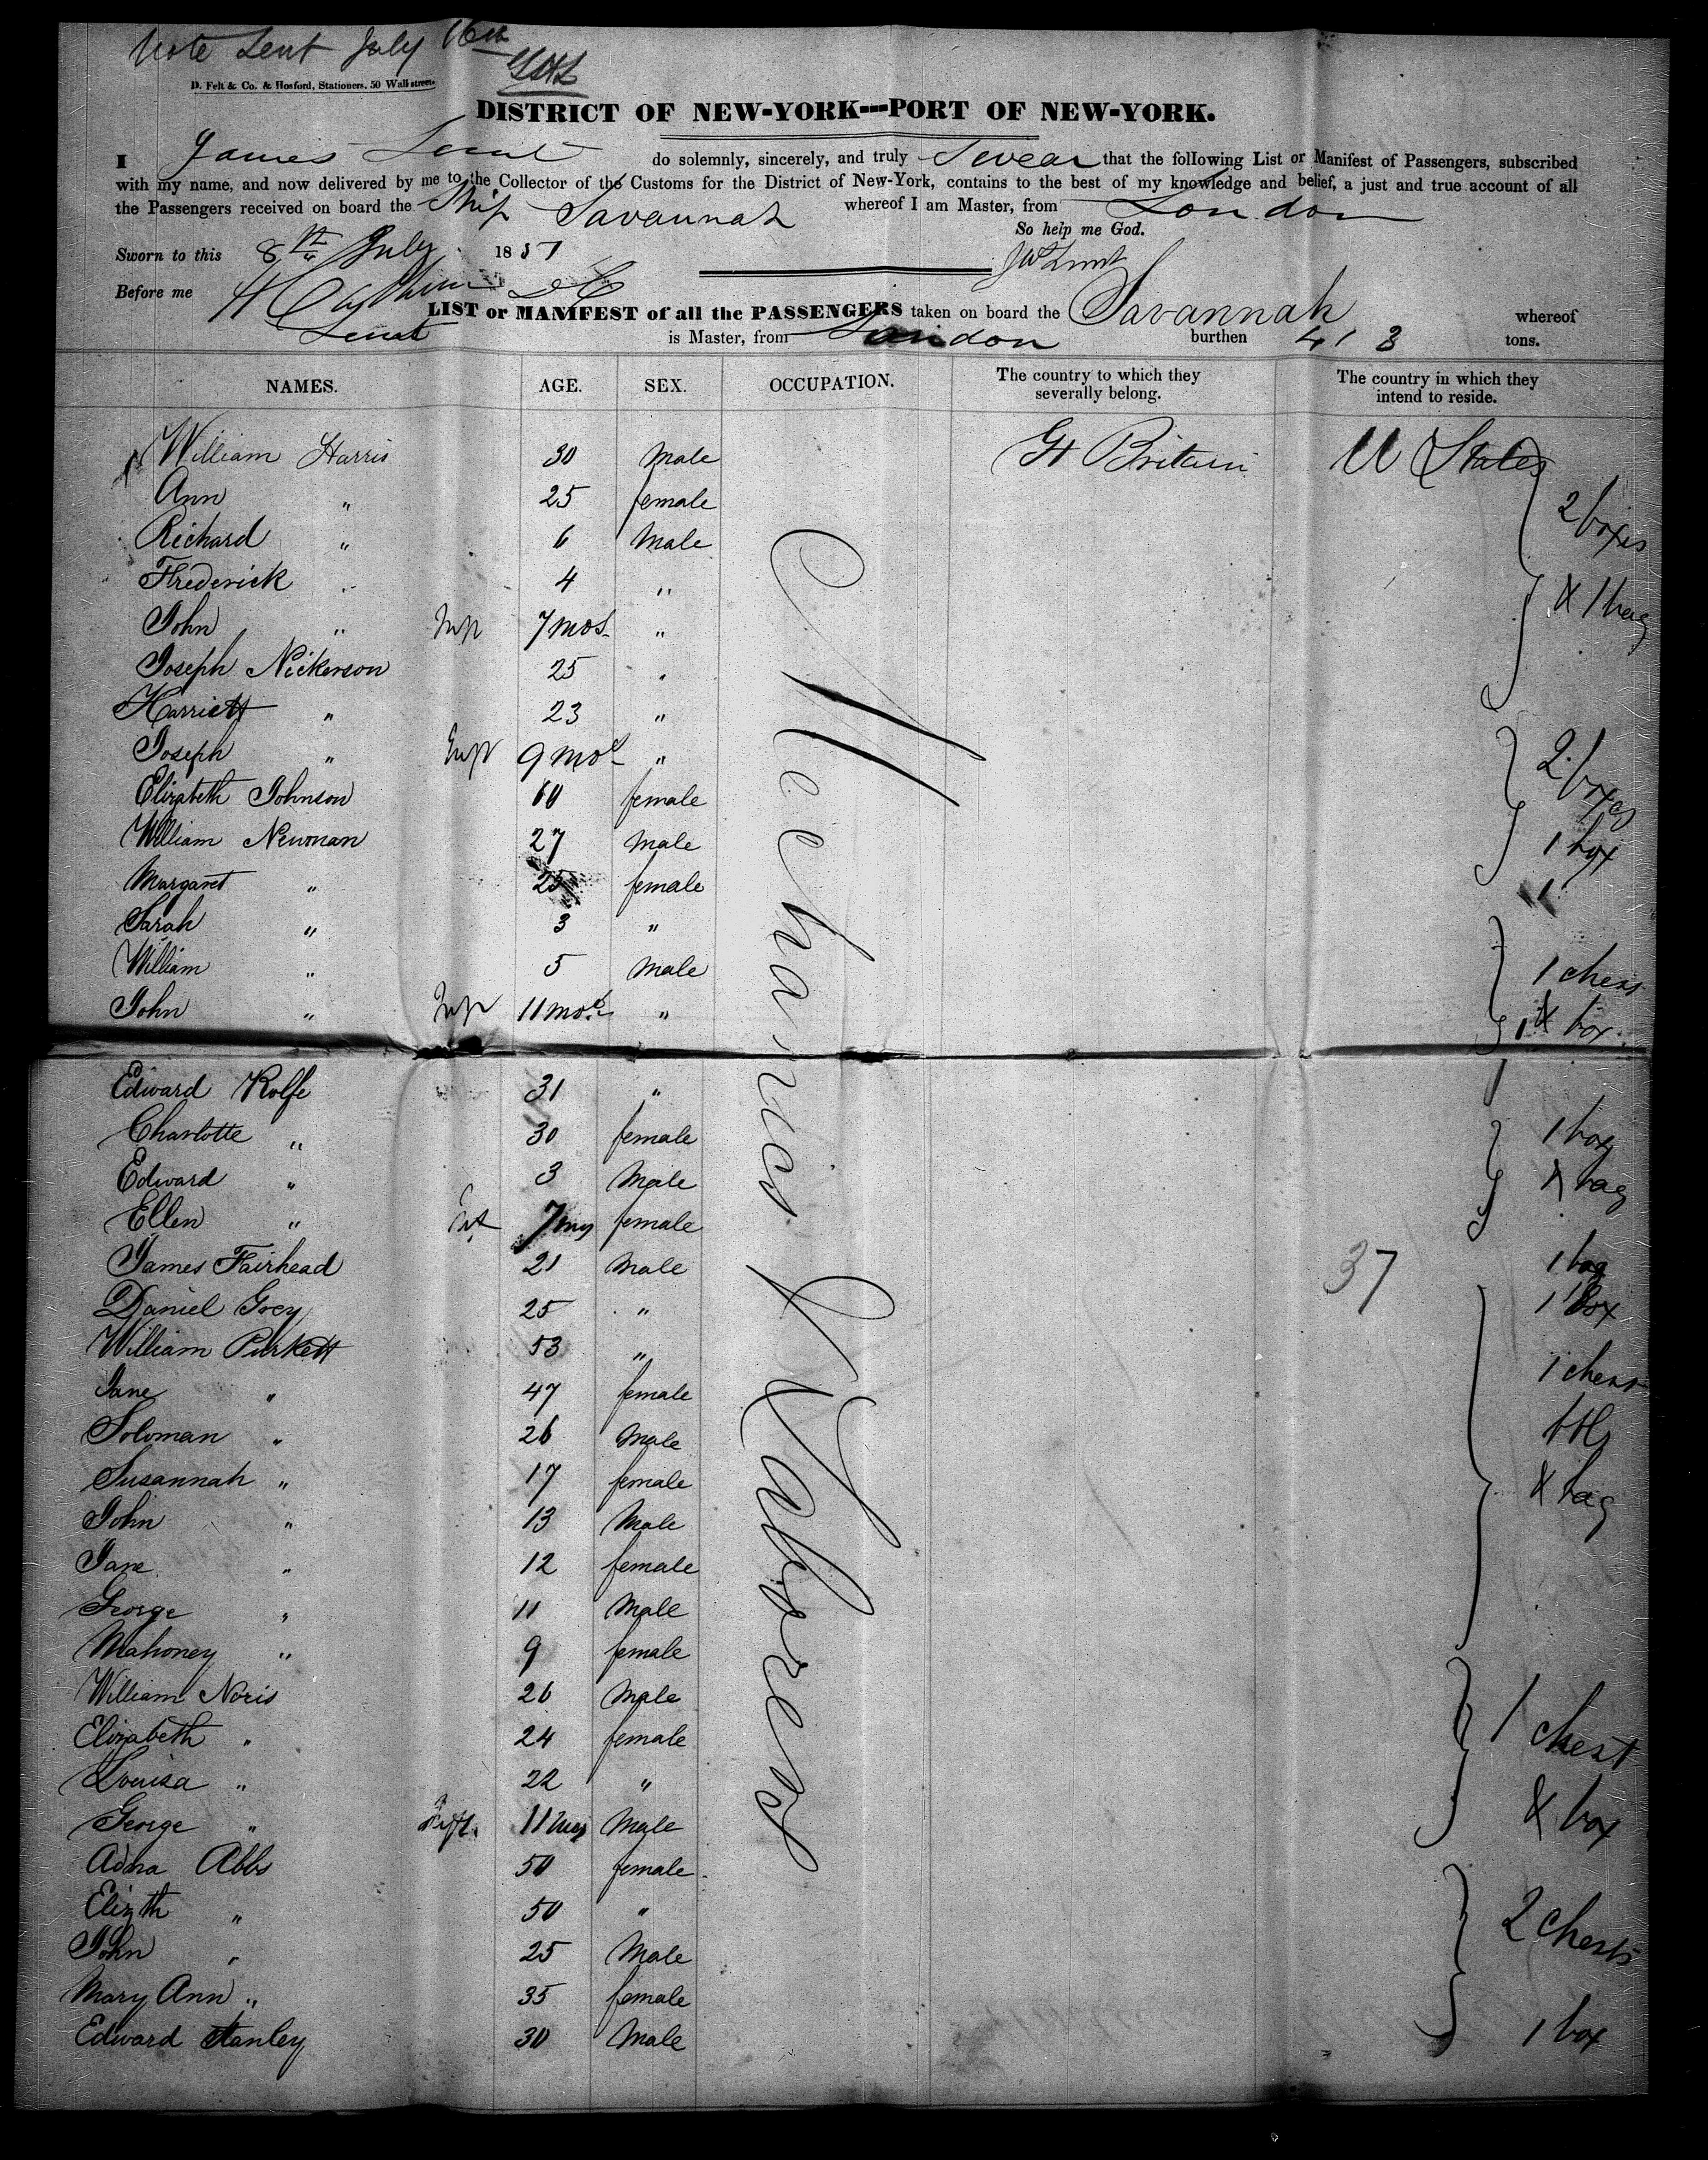 Note Sent July 16th
D. Felt & Co. & Hosford, Stationers, 50 Wall street.
DISTRICT OF NEW-YORK---PORT OF NEW-YORK.
I James do solemnly, sincerely, and truly Swear that the following List or Manifest of Passengers, subscribed
with my name, and now delivered by me to the Collector of the Customs for the District of New-York, contains to the best of my knowledge and belief, a just and true account of all
the Passengers received on board the Ship Savannah whereof I am Master, from London
So help me God.
Sworn to this 8th July 18
Before me
LIST or MANIFEST of all the PASSENGERS taken on board the Savannah whereof
is Master, from London burthen 413 tons.
NAMES. AGE. SEX. OCCUPATION. The country to which they severally belong. The country in which they intend to reside.
William Harris 30 Male Gt Britain U States
Ann " 25 female
Richard " 6 Male 2 boxes
Frederick " 4 " & 1 bag
John " Inf 7 mos "
Joseph Nickerson 25 "
Harriett " 23 "
Joseph " Inf 9 mos " 2 boxes
Elizabeth Johnson 60 female
William Newman 27 Male 1 box
Margaret " 25 female 1
Sarah " 3 "
William " 5 Male 1 chest
John " Inf 11 mos " & box
Edward Rolfe 31 "
Charlotte " 30 female 1 box
Edward " 3 Male & bag
Ellen " Inf 7 mos female
James Fairhead 21 Male 37 1 bag
Daniel Grey 25 " 1 Box
William Purkett 53 "
Jane " 47 female 1 chest
Soloman " 26 Male
Susannah " 17 female & bag
John " 13 Male
Jane " 12 female
George " 11 Male
Mahoney " 9 female
William Noris 26 Male
Elizabeth " 24 female 1 chest
Louisa " 22 "
George " Inft. 11 mos Male & box
Adna Abbs 50 female
Elizth " 50 " 2 Chests
John " 25 Male
Mary Ann " 35 female
Edward Stanley 30 Male 1 box
Mechanics & Laborers